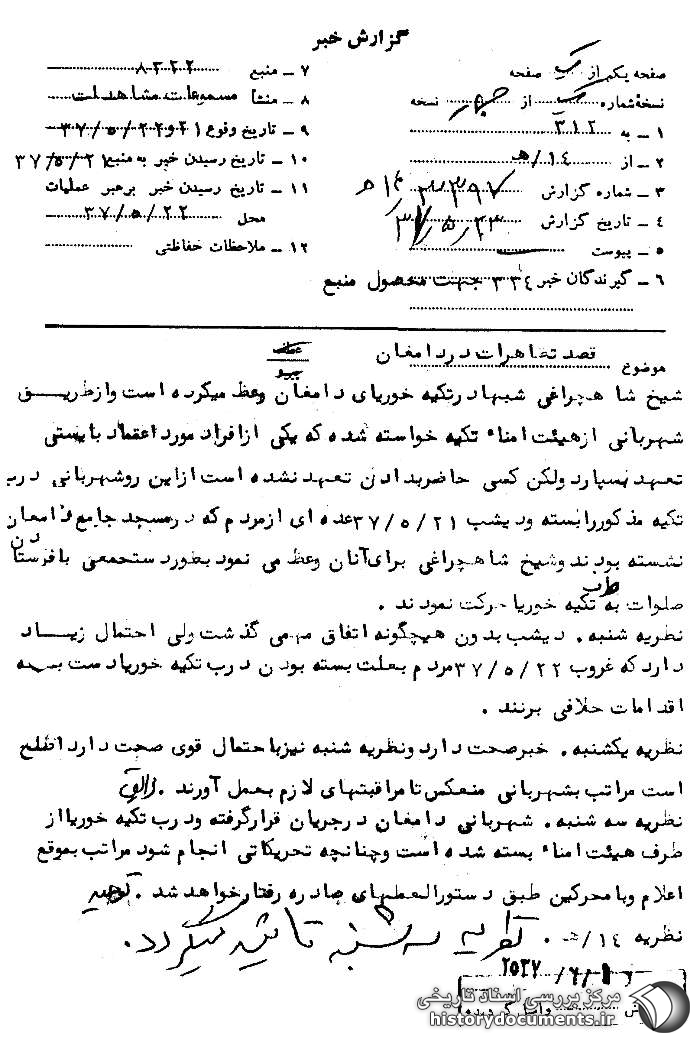 گزارش خبر
صفحه یکم از یک صفحه
نسخهٔ شماره یک از چهار نسخه
۱ ـ به ۳۱۲
۲ ـ از ۱۴/هـ
۳ ـ شماره گزارش
۴ ـ تاریخ گزارش ۳۷/۵/۲۳
۵ ـ پیوست
۶ ـ گیرندگان خبر ۳۳٤ جهت محصول منبع
۷ ـ منبع ۸۳۲۲
۸ ـ منشأ مسموعات مشاهدات
۹ ـ تاریخ وقوع ۲۱و۳۷/۵/۲۲
۱۰ ـ تاریخ رسیدن خبر به منبع ۳۷/۵/۲۱
۱۱ ـ تاریخ رسیدن خبر برهبر عملیات
محل ۳۷/۵/۲۲
۱۲ ـ ملاحظات حفاظتی
موضوع قصد تظاهرات در دامغان
شیخ شاهچراغی شبها در تکیه خوریای دامغان وعظ میکرده است واز طریق
شهربانی از هیئت امناء تکیه خواسته شده که یکی از افراد مورد اعتماد بایستی
تعهد بسپارد ولکن کسی حاضر بدادن تعهد نشده است از این رو شهربانی درب
تکیه مذکور را بسته و دیشب ۳۷/۵/۲۱ عده ای از مردم که در مسجد جامع دامغان
نشسته بودند وشیخ شاهچراغی برای آنان وعظ می نمود بطور دستجمعی با فرستادن
صلوات به طرف تکیه خوریا حرکت نمودند .
نظریه شنبه . دیشب بدون هیچگونه اتفاق مهمی گذشت ولی احتمال زیاد
دارد که غروب ۳۷/۵/۲۲ مردم بعلت بسته بودن درب تکیه خوریا دست به
اقدامات خلافی بزنند .
نظریه یکشنبه . خبر صحت دارد ونظریه شنبه نیز با احتمال قوی صحت دارد اصلح
است مراتب بشهربانی منعکس تا مراقبتهای لازم بعمل آورند .
نظریه سه شنبه . شهربانی دامغان در جریان قرار گرفته ودرب تکیه خوریا از
طرف هیئت امناء بسته شده است وچنانچه تحریکاتی انجام شود مراتب بموقع
اعلام وبا محرکین طبق دستورالعملهای صادره رفتار خواهد شد .
نظریه ۱۴/هـ . نظریه سه شنبه تائید میگردد.
۲۵۳۷/۶/۱
واصل گردیده
مرکز بررسی اسناد تاریخی
historydocuments.ir